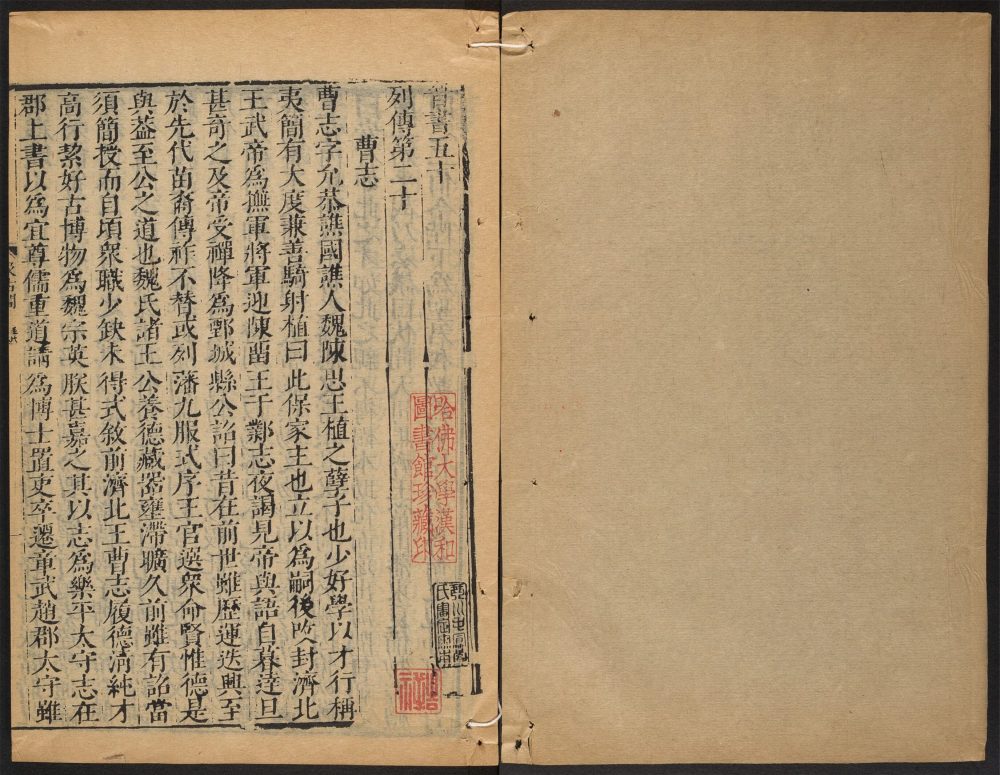 晉書五十
列傳第二十
曹志
曹志字允恭譙國譙人魏陳思王植之孽子也少好學以才行稱
夷簡有大度兼善騎射植曰此保家主也立以為嗣後改封濟北
王武帝為撫軍將軍迎陳留王于鄴志夜謁見帝與語自暮達旦
甚奇之及帝受禪降為鄄城縣公詔曰昔在前世雖歷運迭興至
於先代苗裔傳祚不替或列藩九服式序王官選衆命賢惟德是
與葢至公之道也魏氏諸王公養德藏器壅滯曠久前雖有詔當
須簡授而自頃衆職少缺未得式敘前濟北王曹志履德清純才
高行絜好古博物為魏宗英朕甚嘉之其以志為樂平太守志在
郡上書以為宜尊儒重道請為博士置吏卒遷章武趙郡太守雖
哈佛大學漢和
圖書館珍藏印